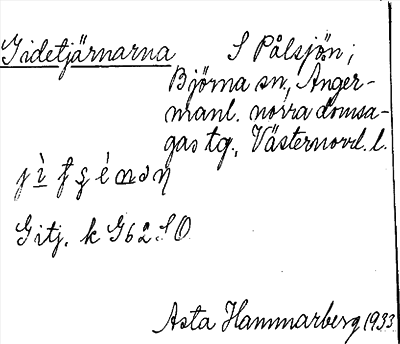 Gidetjärnarna S Pålsjön;
Björna sn, Ånger-
manl. norra domsa-
gas tg., Västernorrl. l.
Gitj. k G62 SO
Asta Hammarberg 1933